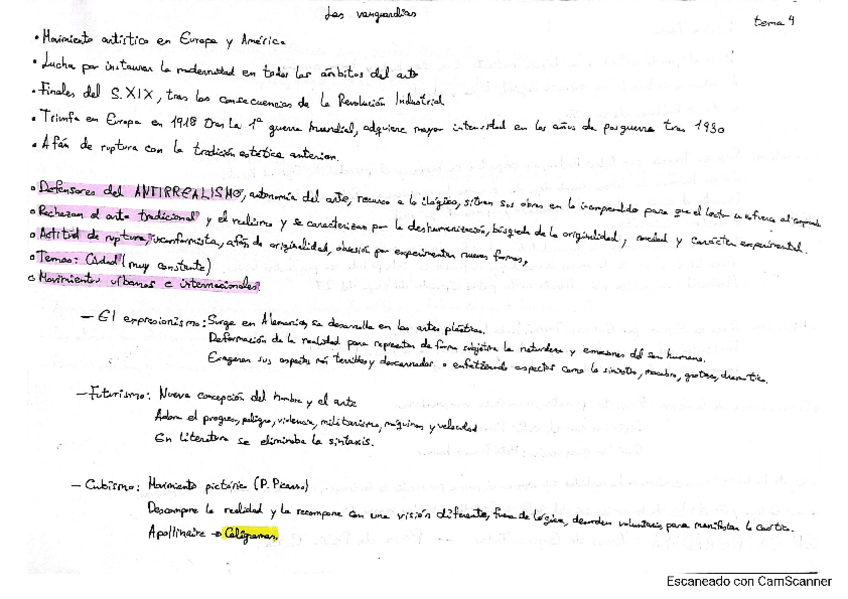 Las vanguardias
tema 4
• Movimiento artístico en Europa y América.
• Lucha por instaurar la modernidad en todos los ámbitos del arte
• Finales del S.XIX, tras las consecuencias de la Revolución Industrial
• Triunfa en Europa en 1918 tras la 1ª guerra mundial, adquiere mayor intensidad en los años de posguerra tras 1930
• Afán de ruptura con la tradición estética anterior.
• Defensores del ANTIRREALISMO, autonomía del arte, recurso a lo ilógico, sitúan sus obras en lo incomprendido para que el lector se esfuerce al
• Rechazan el arte tradicional y el realismo y se caracterizan por la deshumanización, búsqueda de la originalidad, y carácter experimental.
• Actitud de ruptura, inconformista, afán de originalidad, obsesión por experimentar nuevas formas,
• Temas: Ciudad (muy constante)
• Movimientos urbanos e internacionales.
— El expresionismo: Surge en Alemania, se desarrolla en las artes plásticas.
Deformación de la realidad para representar de forma subjetiva la naturaleza y emociones del ser humano.
Exageran sus aspectos más terribles y descarnados o enfatizando aspectos como lo siniestro, macabro, grotesco, dramático.
— Futurismo: Nueva concepción del hombre y el arte
Adora el progreso, peligro, violencia, militarismo, máquinas y velocidad
En literatura se eliminaba la sintaxis.
— Cubismo: Movimiento pictórico (P. Picasso)
Descompone la realidad y la recompone con una visión diferente, fuera de lógica, desorden voluntario para manifestar lo caótico.
Apollinaire → Caligramas.
Escaneado con CamScanner